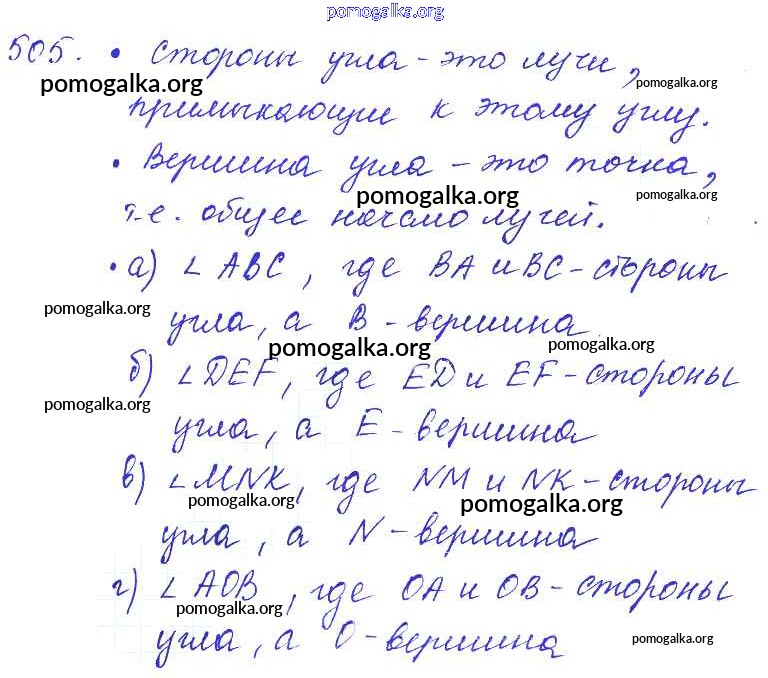 pomogalka.org
505. • Стороны угла - это лучи,
pomogalka.org pomogalka.org
примыкающие к этому углу.
• Вершина угла - это точка,
pomogalka.org pomogalka.org
т.е. общее начало лучей.
• а) ∠ ABC, где BA и BC - стороны
pomogalka.org
угла, а B - вершина
pomogalka.org pomogalka.org
б) ∠ DEF, где ED и EF - стороны
pomogalka.org
угла, а E - вершина
в) ∠ MNK, где NM и NK - стороны
pomogalka.org pomogalka.org
угла, а N - вершина
г) ∠ AOB, где OA и OB - стороны
pomogalka.org
угла, а O - вершина
pomogalka.org